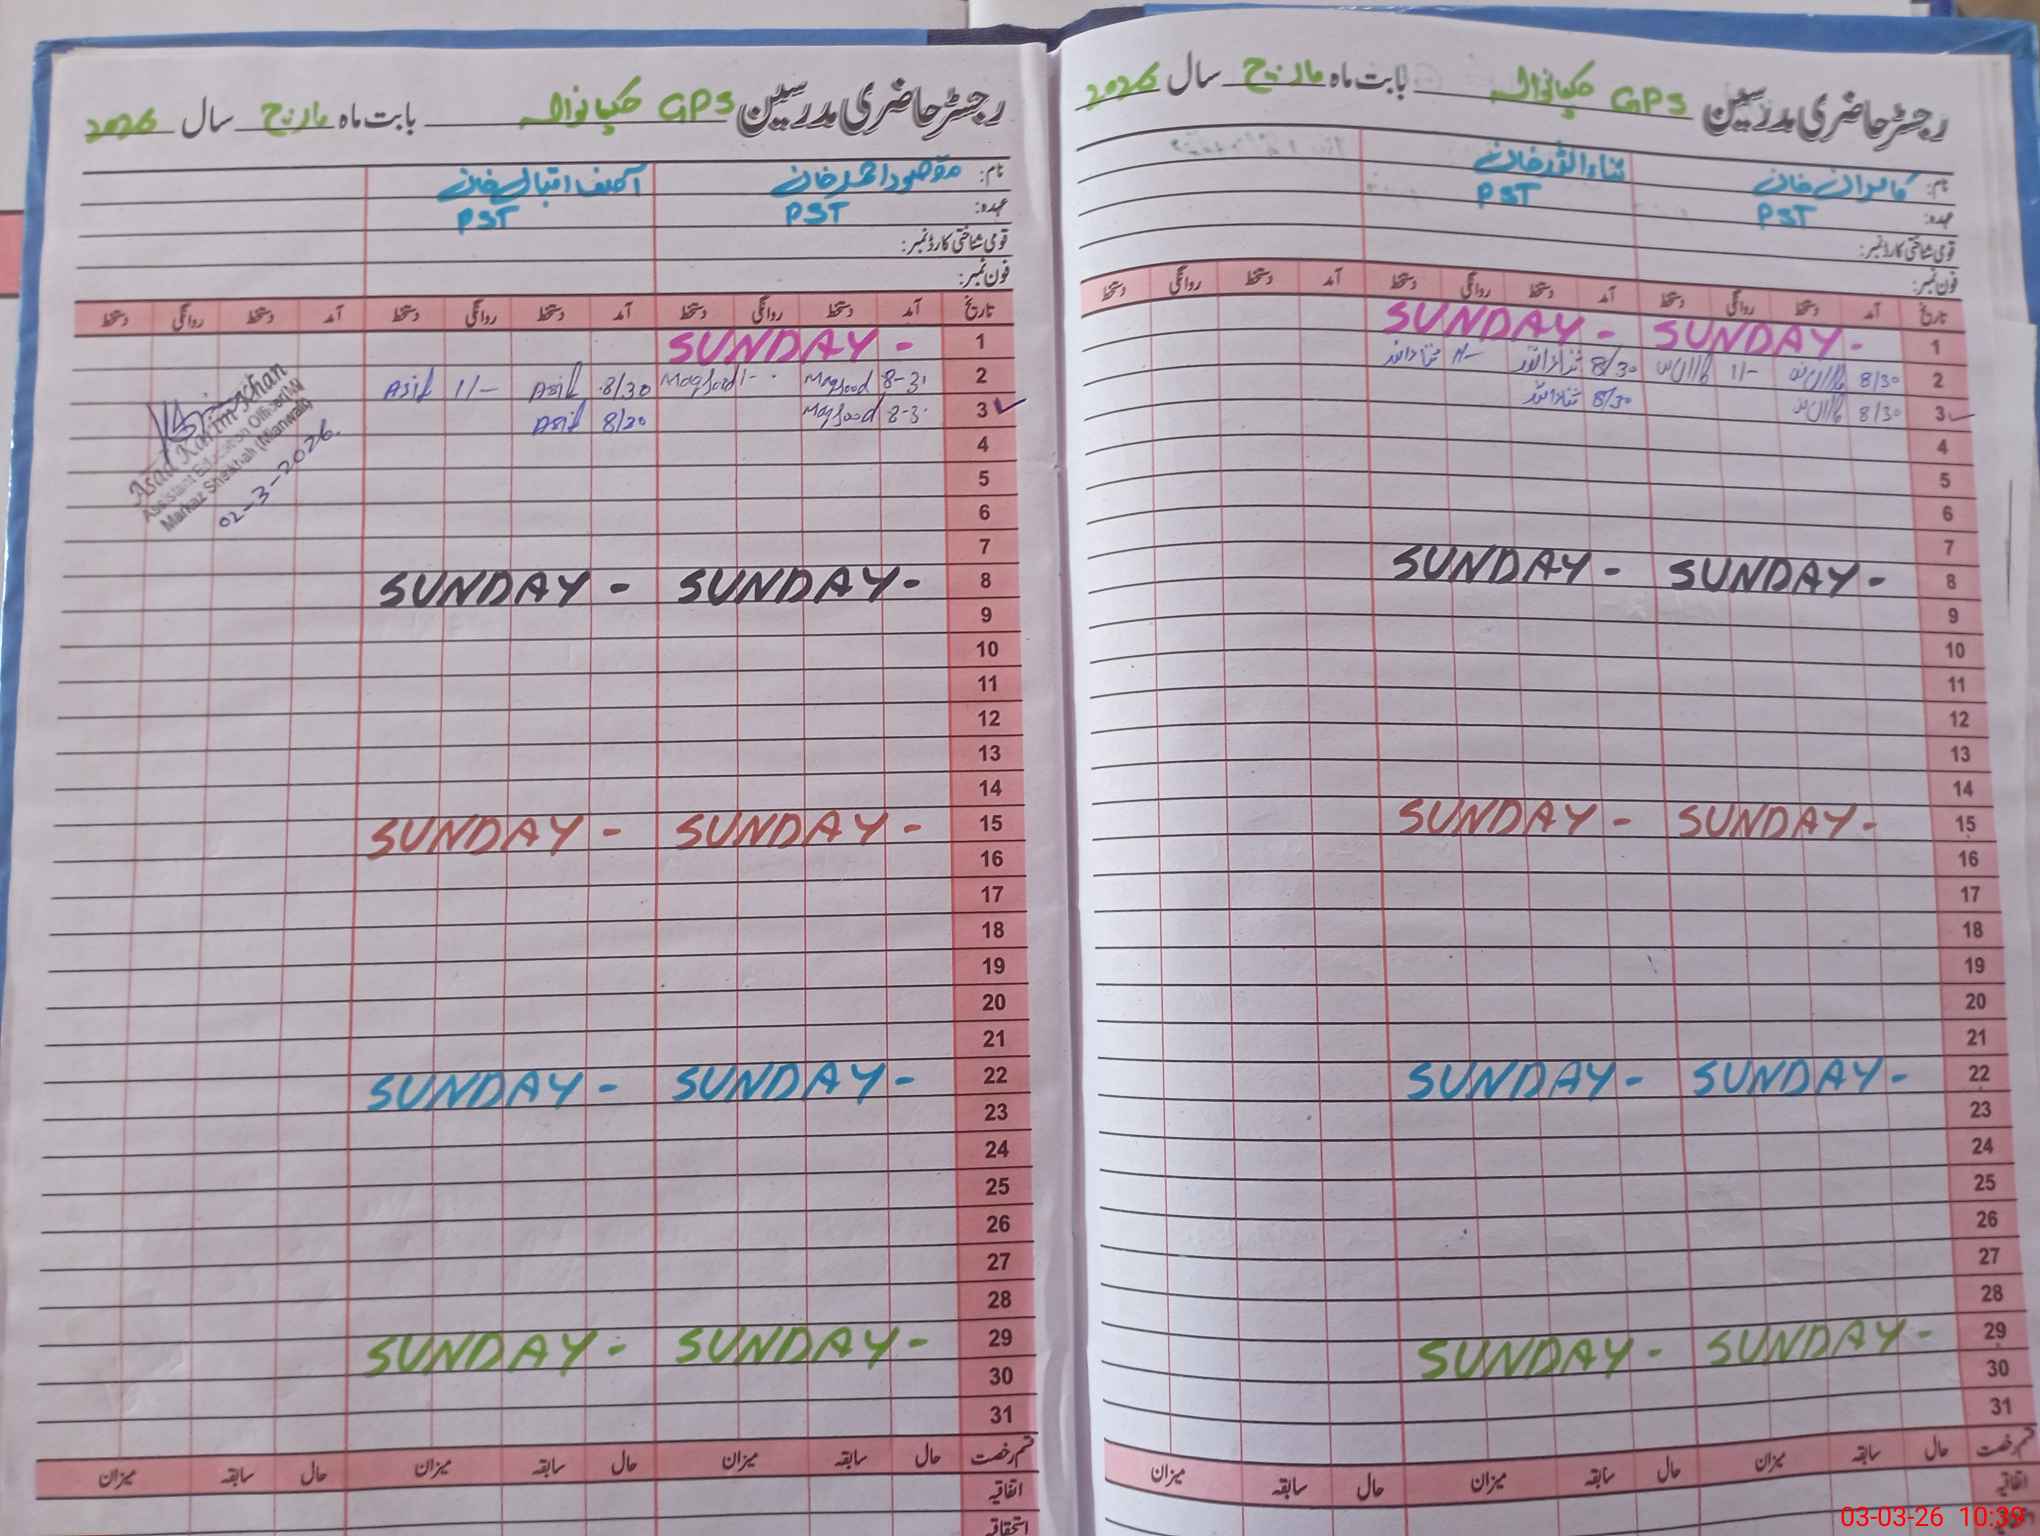 رجسٹر حاضری مدرسین GPS حکیمانوالہ بابت ماہ مارچ سال 2026
نام: مقصود احمد خان آصف اقبال خان
عہدہ: PST PST
قومی شناختی کارڈ نمبر:
فون نمبر:
تاریخ آمد دستخط روانگی دستخط آمد دستخط روانگی دستخط آمد دستخط روانگی دستخط
1 SUNDAY -
2 8-31 Maqsood 1-- Maqsood 8/30 Asif 1/- Asif
3 8-3. Maqsood 8/30 Asif
4
5
6
7
8 SUNDAY - SUNDAY -
9
10
11
12
13
14
15 SUNDAY - SUNDAY -
16
17
18
19
20
21
22 SUNDAY - SUNDAY -
23
24
25
26
27
28
29 SUNDAY - SUNDAY -
30
31
قسم رخصت حال سابقہ میزان حال سابقہ میزان حال سابقہ میزان
اتفاقیہ
استحقاقیہ
Asad Karim Khan
Assistant Education Officer (M)
Markaz Sheikhali (Mianwali)
02-3-2026.
رجسٹر حاضری مدرسین GPS حکیمانوالہ بابت ماہ مارچ سال 2026
نام: کامران خان ثناء اللہ خان
عہدہ: PST PST
قومی شناختی کارڈ نمبر:
فون نمبر:
تاریخ آمد دستخط روانگی دستخط آمد دستخط روانگی دستخط آمد دستخط روانگی دستخط
1 SUNDAY - SUNDAY -
2 8/30 کامران 1/- کامران 8/30 ثناءاللہ 1/- ثناءاللہ
3 8/30 کامران 8/30 ثناءاللہ
4
5
6
7
8 SUNDAY - SUNDAY -
9
10
11
12
13
14
15 SUNDAY - SUNDAY -
16
17
18
19
20
21
22 SUNDAY - SUNDAY -
23
24
25
26
27
28
29 SUNDAY - SUNDAY -
30
31
قسم رخصت حال سابقہ میزان حال سابقہ میزان حال سابقہ میزان
اتفاقیہ
03-03-26 10:39